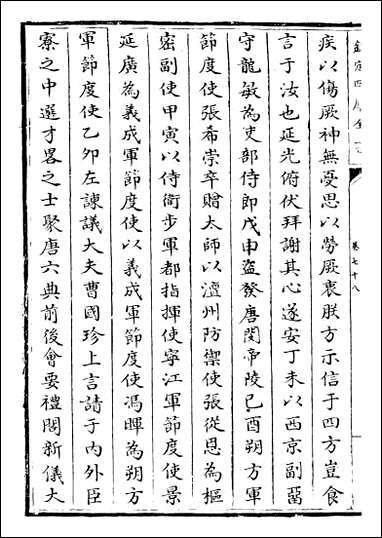 欽定四庫全書
卷七十八
疾以傷厥神無憂思以勞厥衷朕方示信于四方豈食
言于汝也延光俯伏拜謝其心遂安丁未以西京副留
守龍敏為吏部侍郎戊申盜發唐閔帝陵己酉朔方軍
節度使張希崇卒贈太師以澶州防禦使張從恩為樞
密副使甲寅以侍衛步軍都指揮使寧江軍節度使景
延廣為義成軍節度使以義成軍節度使馮暉為朔方
軍節度使乙夘左諫議大夫曹國珍上言請于内外臣
寮之中選才畧之士聚唐六典前後會要禮閣新儀大